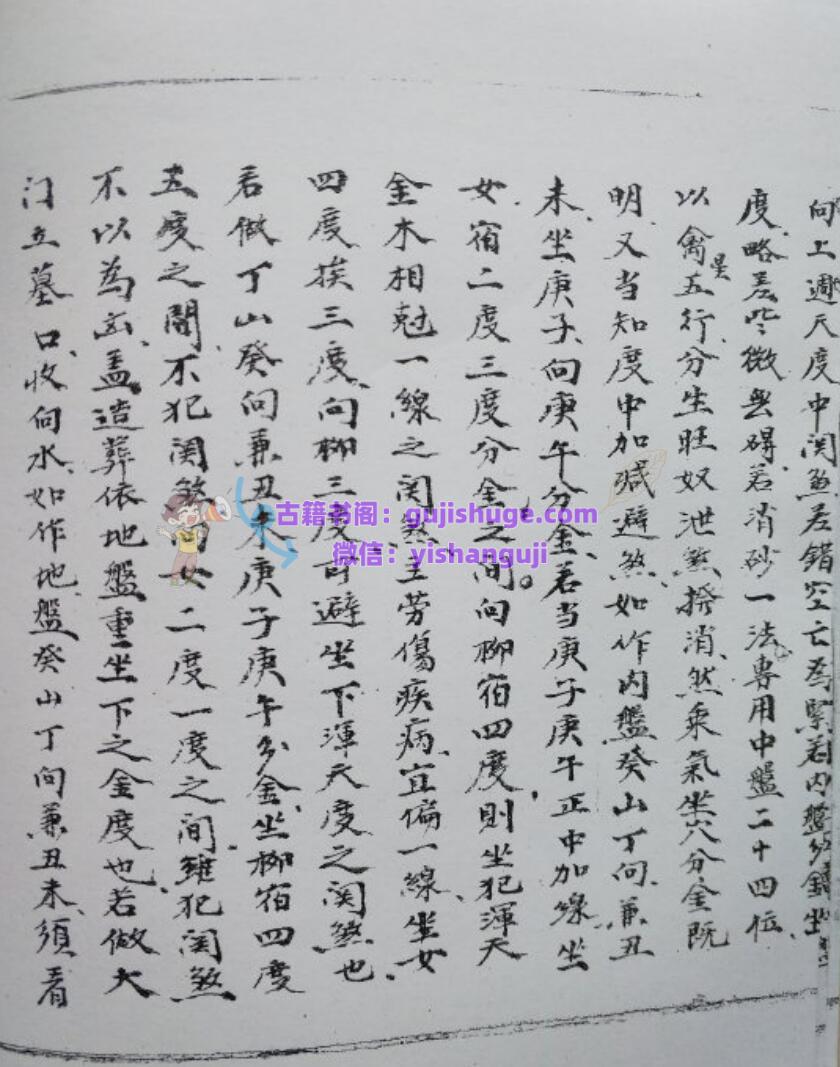 向上週天度中関煞差錯空亡為緊若内盤分鐘坐
度、略差些微無碍、若消砂一法專用中盤二十四位、
以禽星五行、分生旺奴泄煞、撥消、然乘氣坐穴分金既
明、又当知度中加减避煞、如作内盤癸山丁向、兼丑
未、坐庚子、向庚午分金、若当庚子庚午正中加線、坐
女宿二度三度分金之间、向柳宿四度、則坐犯渾天
金木相尅一線之関煞、主劳傷疾病、宜偏一線、坐女
四度挨三度、向柳三度、可避坐下渾天度之関煞也、
若做丁山癸向兼丑未庚子庚午分金、坐柳宿四度
五度之間、不犯関煞、向女二度一度之间、雖犯関煞
不以為忌、盖造葬依地盤重坐下之金度也、若做大
门立墓口、收向水、如作地盤癸山丁向兼丑未、須看
古籍书阁：gujishuge.com
微信：yishanguji